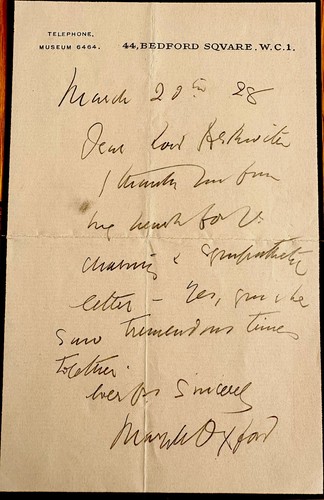 TELEPHONE,
MUSEUM 6464.
44, BEDFORD SQVARE, W.C.1.
March 20th 28
Dear Lord
I thank you from
my heart for yr
charming & sympathetic
letter – Yes, you & he
saw tremendous times
together.
Ever yrs Sincerely
Margot Oxford